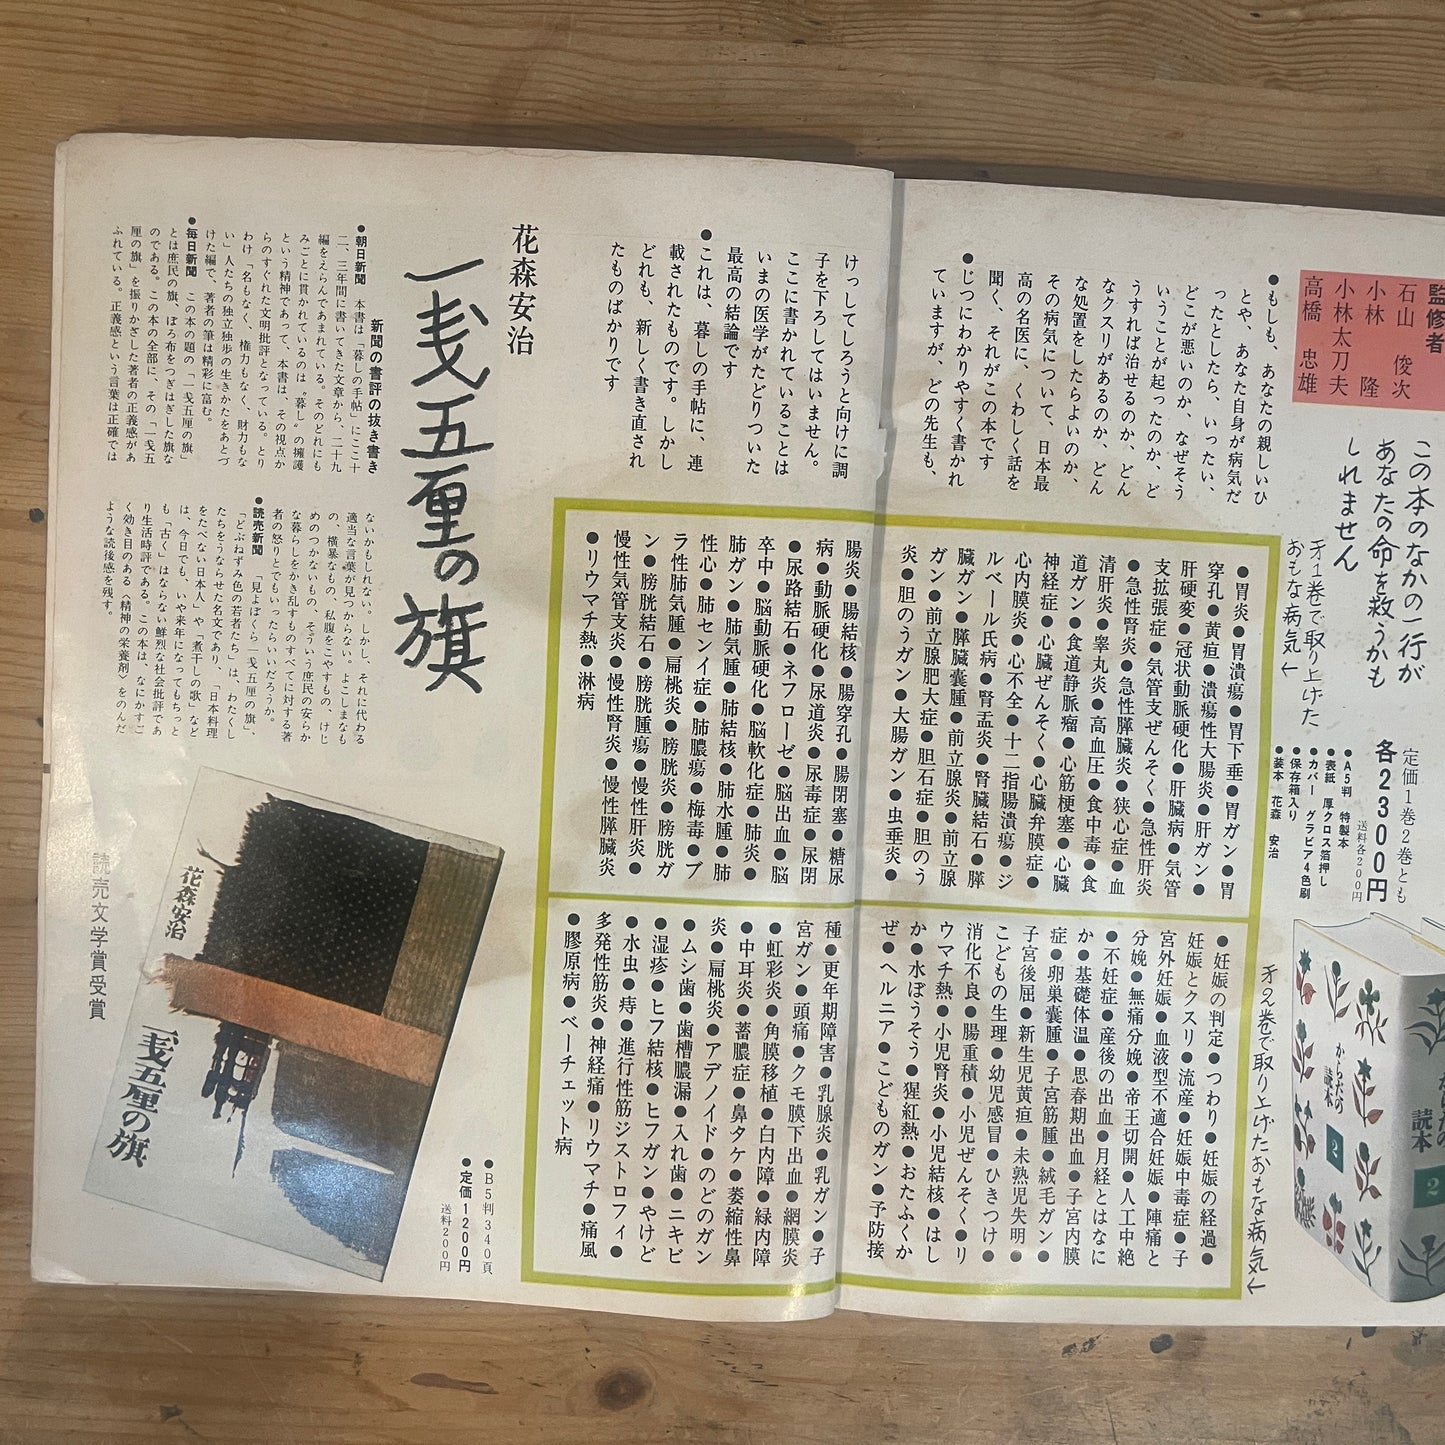 監修者
石山 俊次
小林 隆
小林太刀夫
高橋 忠雄
この本のなかの一行が
あなたの命を救うかも
しれません
●もしも、あなたの親しいひ
とや、あなた自身が病気だ
ったとしたら、いったい、
どこが悪いのか、なぜそう
いうことが起ったのか、ど
うすれば治せるのか、どん
なクスリがあるのか、どん
な処置をしたらよいのか、
その病気について、日本最
高の名医に、くわしく話を
聞く、それがこの本です
●じつにわかりやすく書かれ
ていますが、どの先生も、
けっしてしろうと向けに調
子を下ろしてはいません。
ここに書かれていることは
いまの医学がたどりついた
最高の結論です
●これは、暮しの手帖に、連
載されたものです。しかし
どれも、新しく書き直され
たものばかりです
定価1巻2巻とも
各2300円
送料各200円
●A5判 特製本
●表紙 厚クロス箔押し
●カバー グラビア4色刷
●保存箱入り
●装本 花森 安治
からだの
読本
2
読本
2
才1巻で取り上げた
おもな病気←
●胃炎●胃潰瘍●胃下垂●胃ガン●胃
穿孔●黄疸●潰瘍性大腸炎●肝ガン●
肝硬変●冠状動脈硬化●肝臓病●気管
支拡張症●気管支ぜんそく●急性肝炎
●急性腎炎●急性膵臓炎●狭心症●血
清肝炎●睾丸炎●高血圧●食中毒●食
道ガン●食道静脈瘤●心筋梗塞●心臓
神経症●心臓ぜんそく●心臓弁膜症●
心内膜炎●心不全●十二指腸潰瘍●ジ
ルベール氏病●腎盂炎●腎臓結石●膵
臓ガン●膵臓嚢腫●前立腺炎●前立腺
ガン●前立腺肥大症●胆石症●胆のう
炎●胆のうガン●大腸ガン●虫垂炎●
腸炎●腸結核●腸穿孔●腸閉塞●糖尿
病●動脈硬化●尿道炎●尿毒症●尿閉
●尿路結石●ネフローゼ●脳出血●脳
卒中●脳動脈硬化●脳軟化症●肺炎●
肺ガン●肺気腫●肺結核●肺水腫●肺
性心●肺センイ症●肺膿瘍●梅毒●ブ
ラ性肺気腫●扁桃炎●膀胱炎●膀胱ガ
ン●膀胱結石●膀胱腫瘍●慢性肝炎●
慢性気管支炎●慢性腎炎●慢性膵臓炎
●リウマチ熱●淋病
才2巻で取り上げたおもな病気←
●妊娠の判定●つわり●妊娠の経過●
妊娠とクスリ●流産●妊娠中毒症●子
宮外妊娠●血液型不適合妊娠●陣痛と
分娩●無痛分娩●帝王切開●人工中絶
●不妊症●産後の出血●月経とはなに
か●基礎体温●思春期出血●子宮内膜
症●卵巣嚢腫●子宮筋腫●絨毛ガン●
子宮後屈●新生児黄疸●未熟児失明●
こどもの生理●幼児感冒●ひきつけ●
消化不良●腸重積●小児ぜんそく●リ
ウマチ熱●小児腎炎●小児結核●はし
か●水ぼうそう●猩紅熱●おたふくか
ぜ●ヘルニア●こどものガン●予防接
種●更年期障害●乳腺炎●乳ガン●子
宮ガン●頭痛●クモ膜下出血●網膜炎
●虹彩炎●角膜移植●白内障●緑内障
●中耳炎●蓄膿症●鼻タケ●萎縮性鼻
炎●扁桃炎●アデノイド●のどのガン
●ムシ歯●歯槽膿漏●入れ歯●ニキビ
●湿疹●ヒフ結核●ヒフガン●やけど
●水虫●痔●進行性筋ジストロフィ●
多発性筋炎●神経痛●リウマチ●痛風
●膠原病●ベーチェット病
花森安治
一戔五厘の旗
新聞の書評の抜き書き
●朝日新聞 本書は「暮しの手帖」にここ十
二、三年間に書いてきた文章から、二十九
編をえらんであまれている。そのどれにも
みごとに貫かれているのは〝暮し〟の擁護
という精神であって、本書は、その視点か
らのすぐれた文明批評となっている。とり
わけ「名もなく、権力もなく、財力もな
い」人たちの独立独歩の生きかたをあとづ
けた編で、著者の筆は精彩に富む。
●毎日新聞 この本の題の「一戔五厘の旗」
とは庶民の旗、ぼろ布をつぎはぎした旗な
のである。この本の全部に、その「一戔五
厘の旗」を振りかざした著者の正義感があ
ふれている。正義感という言葉は正確では
ないかもしれない。しかし、それに代わる
適当な言葉が見つからない。よこしまなも
の、横暴なもの、私腹をこやすもの、けじ
めのつかないもの、そういう庶民の安らか
な暮らしをかき乱すものすべてに対する著
者の怒りとでもいったらいいだろうか。
●読売新聞 「見よぼくら一戔五厘の旗」、
「どぶねずみ色の若者たち」は、わたくし
たちをうならせた名文であり、「日本料理
をたべない日本人」や「煮干しの歌」など
は、今日でも、いや来年になってもちっと
も「古く」はならない鮮烈な社会批評であ
り生活時評である。この本は、なにかすご
く効き目のある〈精神の栄養剤〉をのんだ
ような読後感を残す。
花森安治
一戔五厘の旗
●B5判340頁
●定価1200円
送料200円
読売文学賞受賞